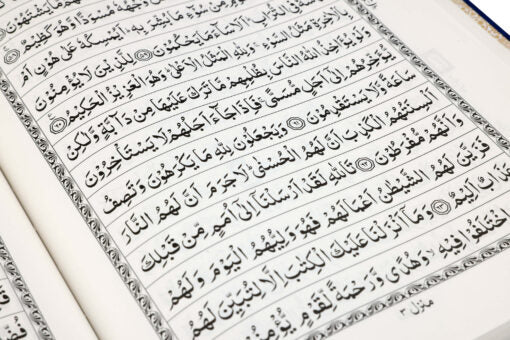 وَجْهُهٗ مُسْوَدًّا وَّهُوَ كَظِيْمٌ ﴿۵۸﴾
مَا بُشِّرَ بِهٖ ؕ اَيُمْسِكُهٗ عَلٰى هُوْنٍ اَمْ
التُّرَابِ ؕ اَلَا سَآءَ مَا يَحْكُمُوْنَ ﴿۵۹﴾ لِلَّذِيْنَ لَا يُؤْمِنُوْنَ
بِالْاٰخِرَةِ مَثَلُ السَّوْءِ ۚ وَلِلّٰهِ الْمَثَلُ الْاَعْلٰى ؕ وَهُوَ الْعَزِيْزُ الْحَكِيْمُ ﴿۶۰﴾
وَلَوْ يُؤَاخِذُ اللّٰهُ النَّاسَ بِظُلْمِهِمْ مَّا تَرَكَ عَلَيْهَا مِنْ دَآبَّةٍ وَّلٰكِنْ
يُّؤَخِّرُهُمْ اِلٰٓى اَجَلٍ مُّسَمًّى ۚ فَاِذَا جَآءَ اَجَلُهُمْ لَا يَسْتَاْخِرُوْنَ
سَاعَةً وَّلَا يَسْتَقْدِمُوْنَ ﴿۶۱﴾ وَيَجْعَلُوْنَ لِلّٰهِ مَا يَكْرَهُوْنَ وَتَصِفُ
اَلْسِنَتُهُمُ الْكَذِبَ اَنَّ لَهُمُ الْحُسْنٰى ؕ لَا جَرَمَ اَنَّ لَهُمُ النَّارَ
وَاَنَّهُمْ مُّفْرَطُوْنَ ﴿۶۲﴾ تَاللّٰهِ لَقَدْ اَرْسَلْنَآ اِلٰٓى اُمَمٍ مِّنْ قَبْلِكَ
فَزَيَّنَ لَهُمُ الشَّيْطٰنُ اَعْمَالَهُمْ فَهُوَ وَلِيُّهُمُ الْيَوْمَ وَلَهُمْ
عَذَابٌ اَلِيْمٌ ﴿۶۳﴾ وَمَآ اَنْزَلْنَا عَلَيْكَ الْكِتٰبَ اِلَّا لِتُبَيِّنَ لَهُمُ
اخْتَلَفُوْا فِيْهِ ۙ وَهُدًى وَّرَحْمَةً لِّقَوْمٍ يُّؤْمِنُوْنَ
منزل ۳